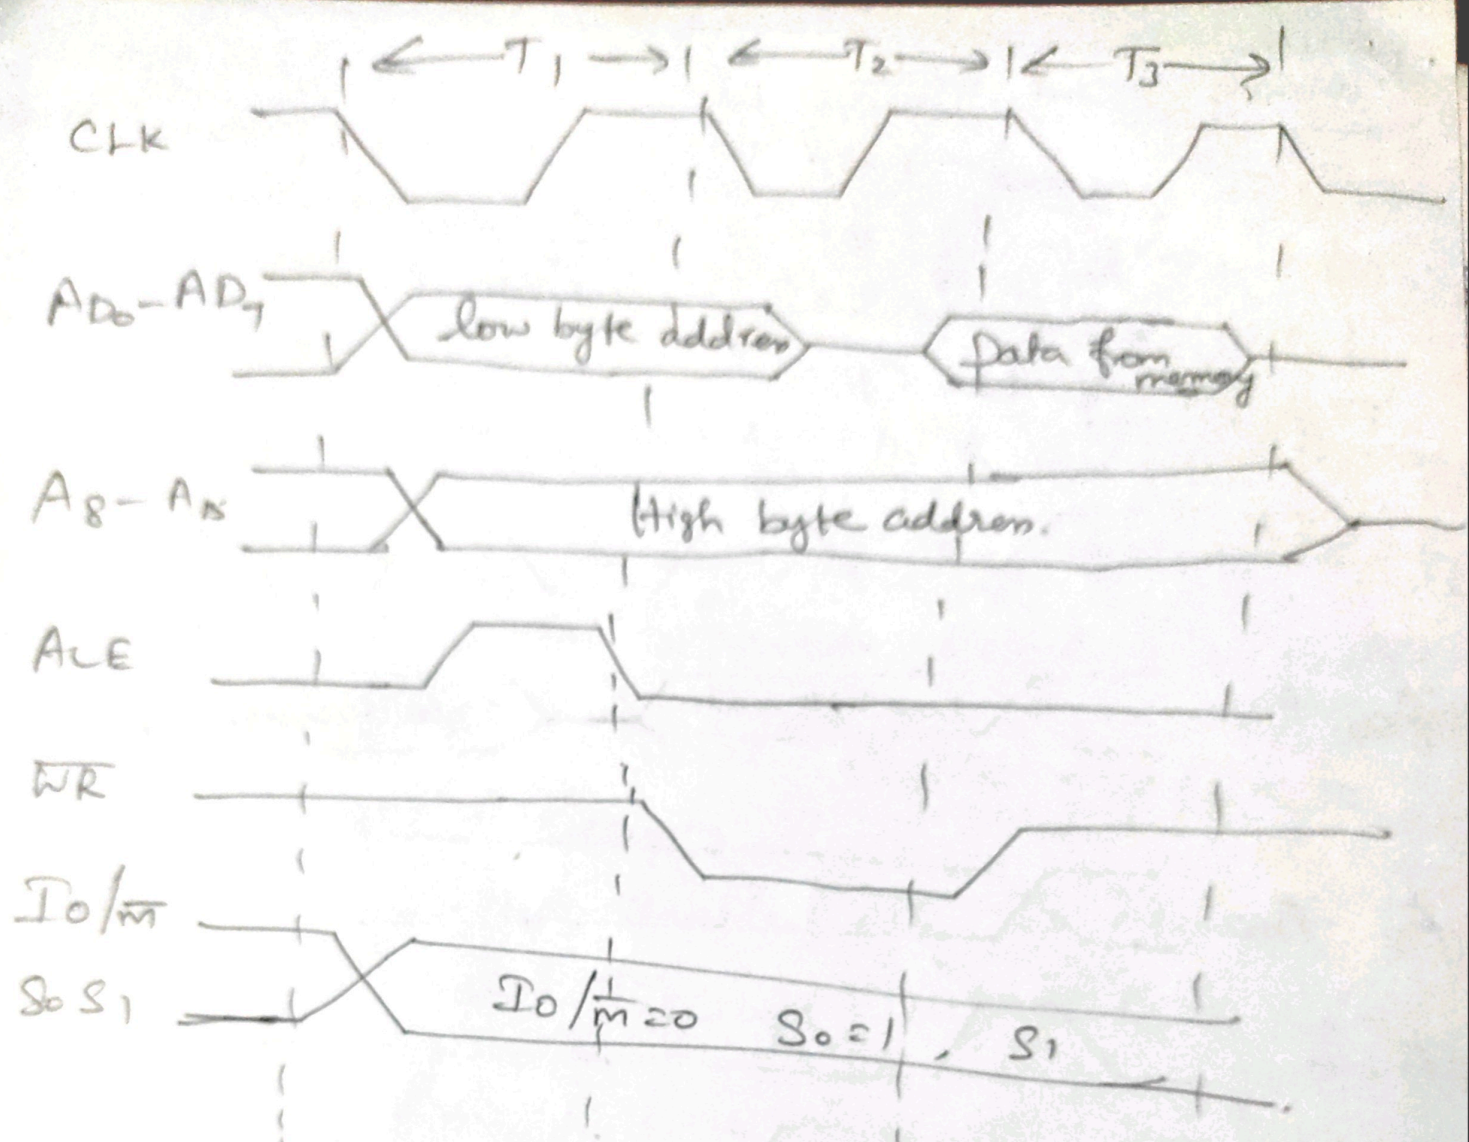 T1 T2 T3
CLK
AD0-AD7 low byte address Data from memory
A8-A15 High byte address.
ALE
W̅R̅
IO/m̅
S0 S1 IO/m̅=0 S0=1, S1